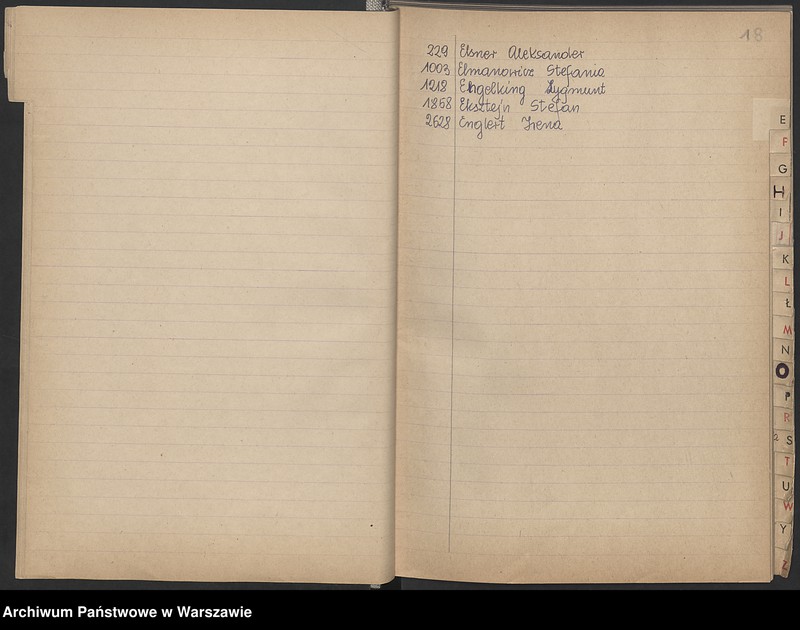 18
229 Elsner Aleksander
1003 Elmanowicz Stefania
1218 Engelking Zygmunt
1868 Eksztejn Stefan
2628 Englert Irena
E
F
G
H
I
J
K
L
Ł
M
N
O
P
R
2 S
T
U
W
Y
Z
Archiwum Państwowe w Warszawie